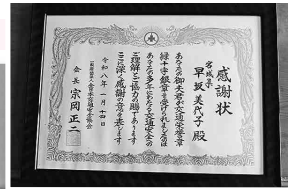 感謝状
宮城県
早坂美代子殿
あなたの御夫君が交通栄誉章
緑十字銀章を受けられましたのは
あなたの多年にわたる交通安全への
ご理解とご協力の賜であります
ここに深く感謝の意を表します
令和八年一月十四日
一般財団法人全日本交通安全協会
会長 宗岡正二